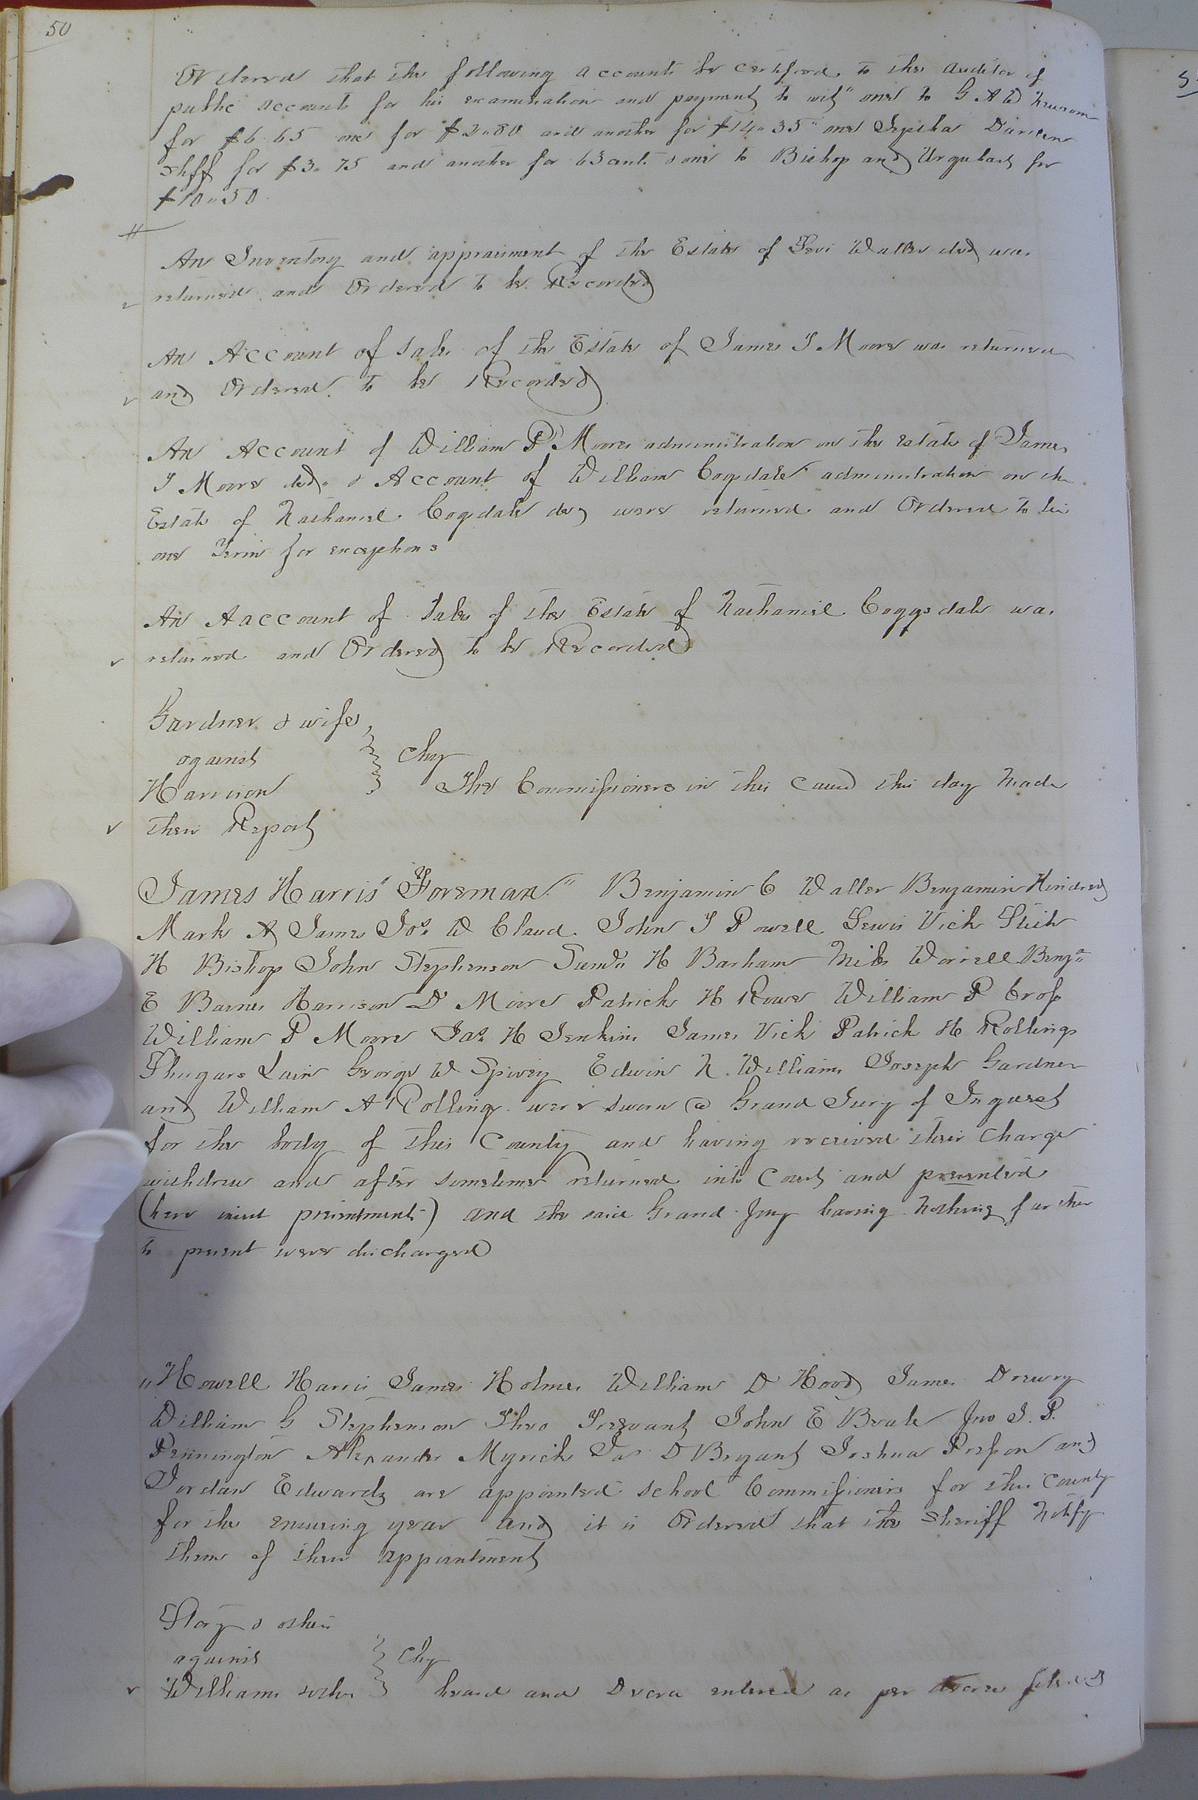 50
Ordered that the following accounts be certifered to the Auditor of
public accounts for his examination and payment "to wit" one to G A W Newsom
for $6.65 one for $2.80 and another for $14.35 one Darden
Shff for $3.75 and another for 63 cents & one to Bishop and Urquhart for
$10.50
An Inventory and appraisment of the Estate of Levi Waller decd was
returned and Ordered to be Recorded
An Account of Sales of the Estate of James T Moore was returned
and Ordered to be Recorded
An Account of William P Moores administration on the estate of James
T Moore decd & Account of William Cogsdales administration on the
Estate of Nathaniel Cogsdale decd were returned and Ordered to lie
one Term for exceptions
An Aaccount of Sales of the Estate of Nathaniel Coggsdale was
returned and Ordered to be Recorded
Gardner & wife
against
Harrison
Chy
The Commissioners in this Cause this day made
their Report
James Harris "Foreman" Benjamin C Waller Benjamin Kindred
Mark A James Jos. W Claud John T Powell Lewis Vick Stith
H Bishop John Stephenson H Barham Miles Worrell Benjn
E Barnes Harrison D Moore Patrick H Rowe William P Cross
William P Moore Jas. H Jenkins James Vick Patrick H Rollings
Lain George W Spivey Edwin N. Williams Joseph Gardner
and William A Rollings were sworn a Grand Jury of Inquest
for the body of this County and having received their charge
withdrew and after sometime returned into Court and presented
(here insert presentments) and the said Grand Jury having nothing further
to present were discharged
Howell Harris James Holmes William D Hood James Drewry
William G Stephenson Theo Trezvant John E Beale Jno S. P.
Pennington Alexander Myrick Jas D Bryant Joshua Pretlow and
Jordan Edwards are appointed school Commissioners for this County
for the ensuing year and it is Ordered that the Sheriff Notify
them of their appointment
& others
against
Williams & others
Chy
heard and Decree entered as per decree filed